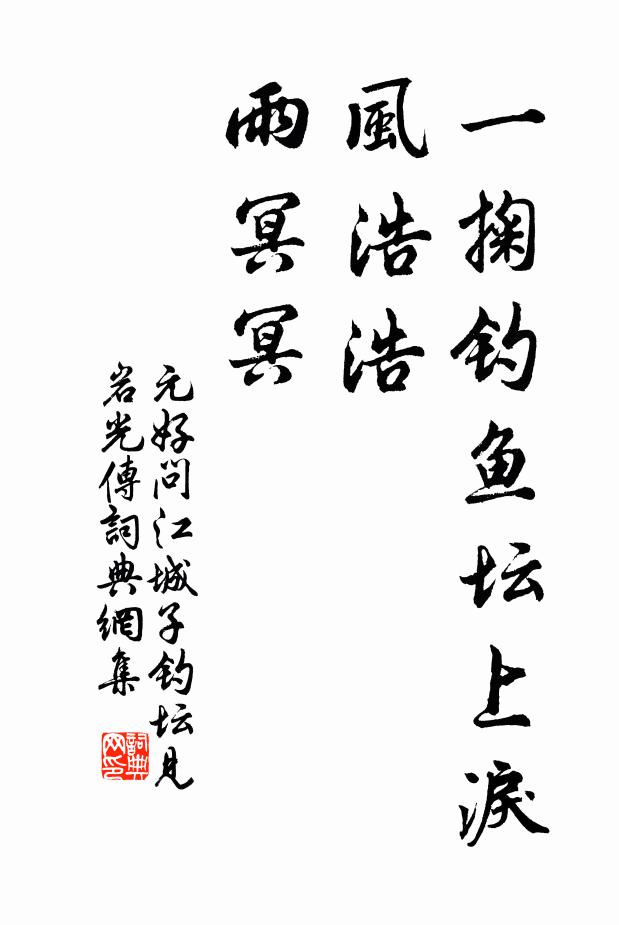 一掬钓鱼坛上淚
風浩浩
雨冥冥
元好问江城子钓坛见
岩光傳詞典網集
詞典网印